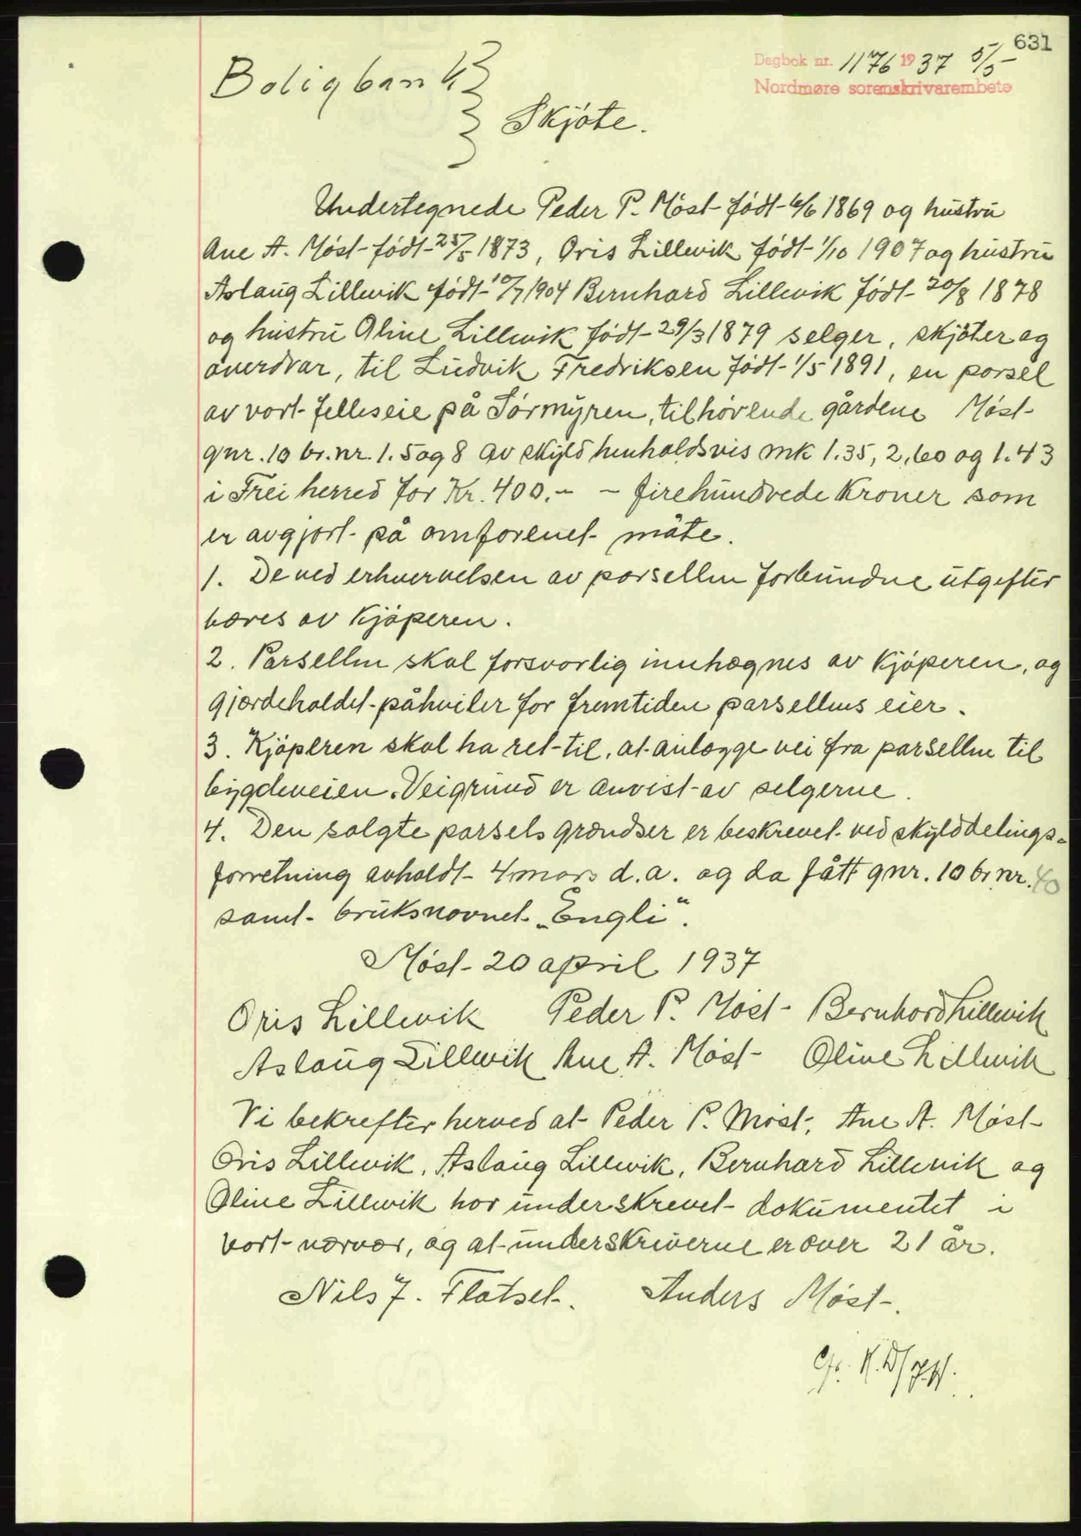 631
Dagbok nr. 1176 1937 5/5
Nordmøre sorenskrivarembete
Boligbank
Skjøte.
Undertegnede Peder P. Møst født 6/6 1869 og hustru
Ane A. Møst født 25/5 1873, Oris Lillevik født 1/10 1907 og hustru
Aslaug Lillevik født 10/7 1904 Bernhard Lillevik født 20/8 1878
og hustru Oline Lillevik født 29/3 1879 selger, skjøter og
overdrar, til Ludvik Fredriksen født 1/5 1891, en parsel
av vort felleseie på Sørmyren, tilhørende gårdene Møst
gnr. 10 br.nr. 1. 5 og 8 av skyld henholdsvis mk 1.35, 2,60 og 1.43
i Frei herred for Kr. 400.- - firehundrede Kroner som
er avgjort på omforenet måte.
1. De ved erhvervelsen av parsellen forbundne utgifter
bæres av Kjøperen.
2. Parsellen skal forsvarlig innhegnes av Kjøperen, og
gjærdeholdet påhviler for fremtiden parsellens eier.
3. Kjøperen skal ha ret til, at anlægge vei fra parsellen til
bygdeveien. Veigrund er anvist av selgerne.
4. Den solgte parsels grændser er beskrevet ved skylddelings-
forretning avholdt 4 mars d.a. og da fått gnr. 10 br.nr. 40
samt bruksnavnet „Engli“.
Møst 20 april 1937
Oris Lillevik Peder P. Møst Bernhard Lillevik
Aslaug Lillevik Ane A. Møst Oline Lillevik
Vi bekrefter herved at Peder P. Møst, Ane A. Møst
Oris Lillevik, Aslaug Lillevik, Bernhard Lillevik og
Oline Lillevik har underskrevet dokumentet i
vort nærvær, og at underskriverne er over 21 år.
Nils J. Flatset. Anders Møst.